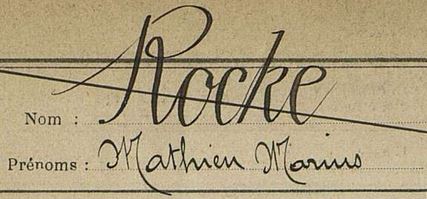 Nom : Rocke
Prénoms : Mathieu Marius